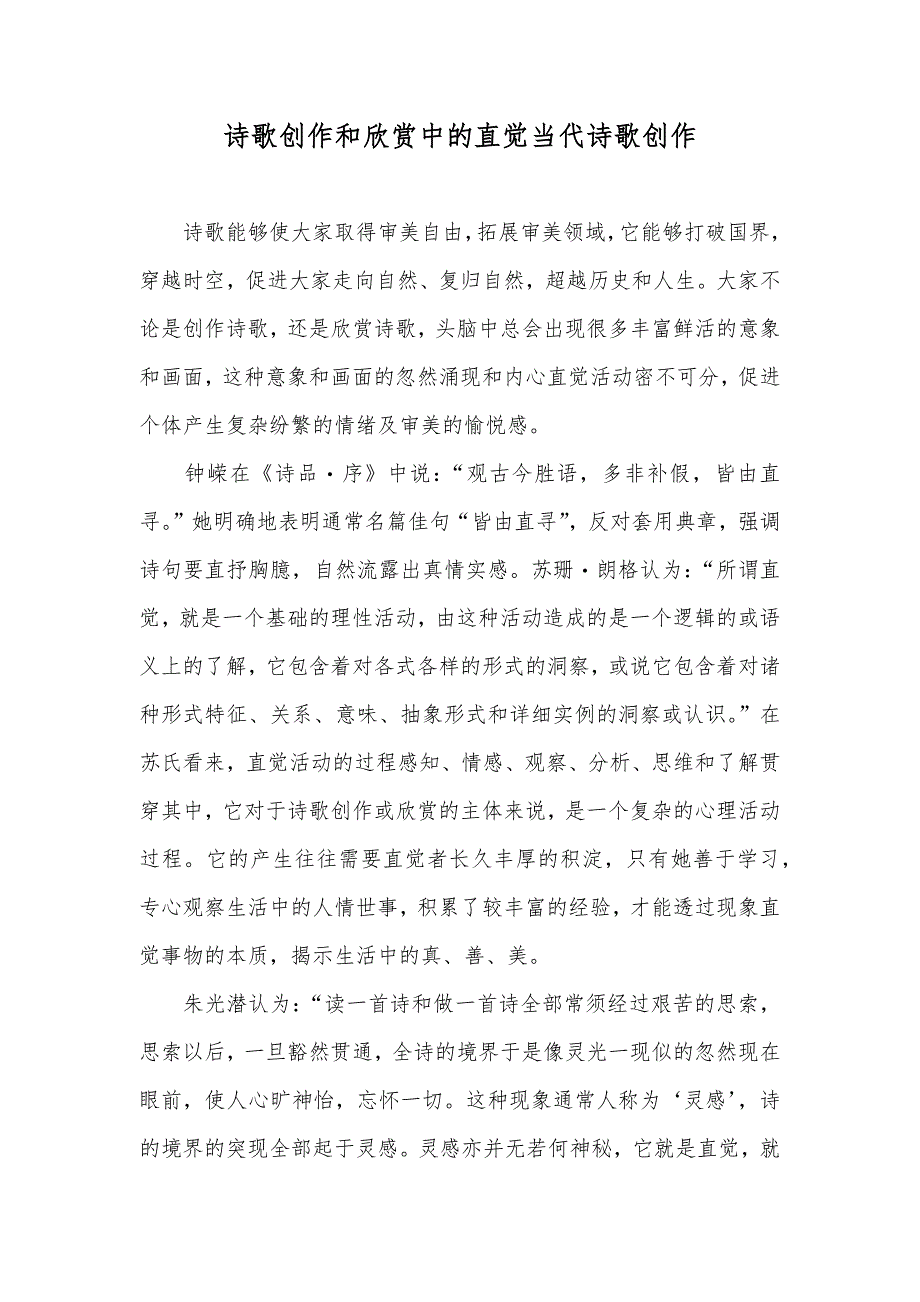 诗歌创作和欣赏中的直觉当代诗歌创作
诗歌能够使大家取得审美自由，拓展审美领域，它能够打破国界，
穿越时空，促进大家走向自然、复归自然，超越历史和人生。大家不
论是创作诗歌，还是欣赏诗歌，头脑中总会出现很多丰富鲜活的意象
和画面，这种意象和画面的忽然涌现和内心直觉活动密不可分，促进
个体产生复杂纷繁的情绪及审美的愉悦感。
钟嵘在《诗品·序》中说：“观古今胜语，多非补假，皆由直
寻。”她明确地表明通常名篇佳句“皆由直寻”，反对套用典章，强调
诗句要直抒胸臆，自然流露出真情实感。苏珊·朗格认为：“所谓直
觉，就是一个基础的理性活动，由这种活动造成的是一个逻辑的或语
义上的了解，它包含着对各式各样的形式的洞察，或说它包含着对诸
种形式特征、关系、意味、抽象形式和详细实例的洞察或认识。”在
苏氏看来，直觉活动的过程感知、情感、观察、分析、思维和了解贯
穿其中，它对于诗歌创作或欣赏的主体来说，是一个复杂的心理活动
过程。它的产生往往需要直觉者长久丰厚的积淀，只有她善于学习，
专心观察生活中的人情世事，积累了较丰富的经验，才能透过现象直
觉事物的本质，揭示生活中的真、善、美。
朱光潜认为：“读一首诗和做一首诗全部常须经过艰苦的思索，
思索以后，一旦豁然贯通，全诗的境界于是像灵光一现似的忽然现在
眼前，使人心旷神怡，忘怀一切。这种现象通常人称为‘灵感’，诗
的境界的突现全部起于灵感。灵感亦并无若何神秘，它就是直觉，就